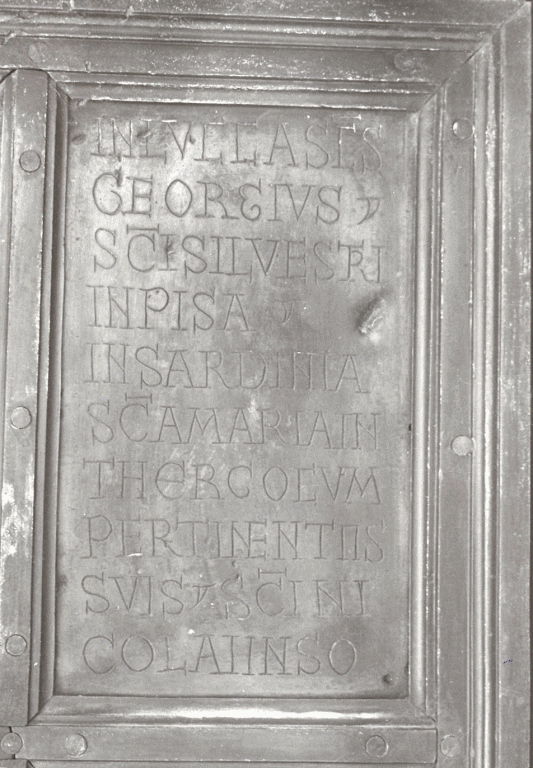 INLVLLASES
GEORGIVS 7
SC̄ISILVESTRI
INPISA 7
INSARDINIA
SC̄AMARIAIN
THERGOLVM
PERTINENTIIS
SVIS 7 SC̄INI
COLAIINSO